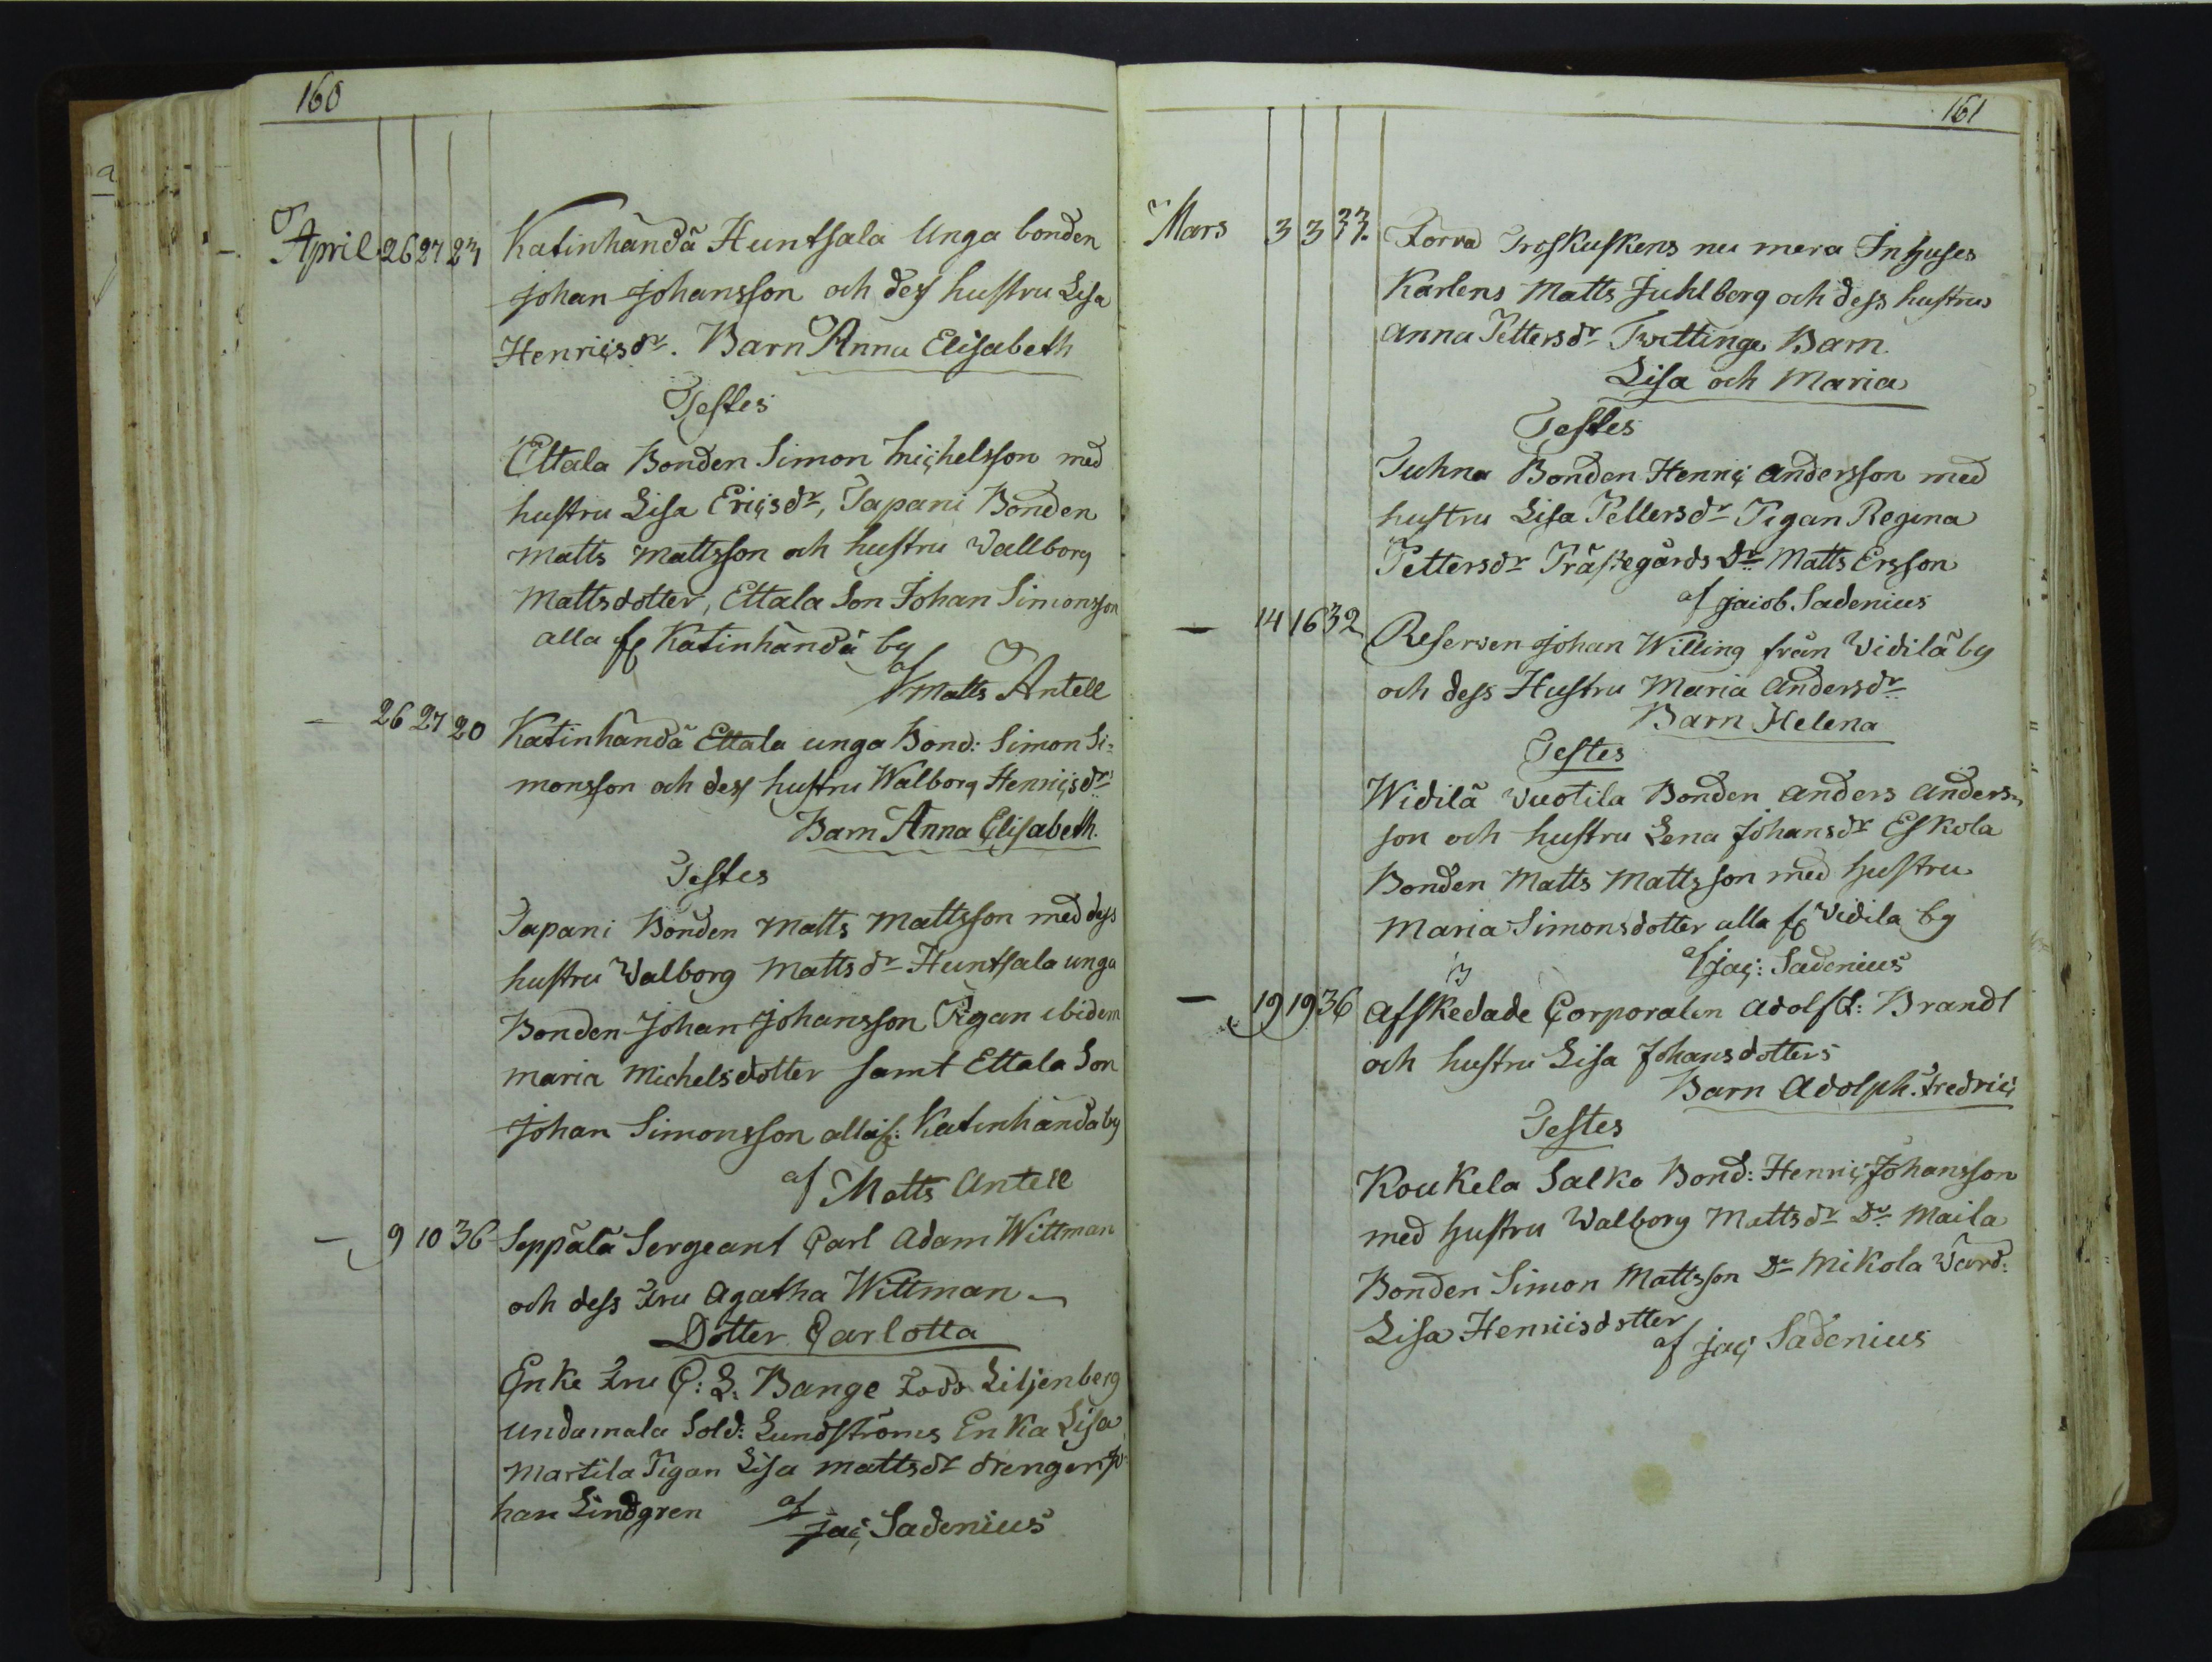 160
April 26 27 27 Katinhändä Huntsala Unga bonden
Johan Johansson och dess hustru Lisa
Henricsdr. Barn Anna Elisabeth
Testes
Ettala Bonden Simon Michelsson med
hustru Lisa Ericsdr, Tapani Bonden
Matts Mattsson och hustru Wallborg
Mattsdotter, Ettala Son Johan Simonsson
alla fr Katinhändä by
af Matts Antell
— 26 27 20 Katinhändä Ettala unga Bond: Simon Si=
monsson och dess hustru Walborg Henricsdr
Barn Anna Elisabeth.
Testes
Tapani Bonden Matts Mattsson med dess
hustru Walborg Mattsdr Huntsala unga
Bonden Johan Johansson Pigan ibidem
Maria Michelsdotter samt Ettala Son
Johan Simonsson alla fr: Katinhändä by
af Matts Antell
— 9 10 36 Seppälä Sergeant Carl Adam Wittman
och dess Fru Agatha Wittman
Dotter Carlotta
Enke Fru C: L. Bange Född Liljenberg
undamala Sold: Lundströms Enka Lisa
Martila Pigan Lisa Mattsdr drengen Jo
han Lindgren af Jac; Sadenius
161
Mars 3 3 33. Förra Troskuskens nu mera Inhuses
Karlens Matts Juhlberg och dess hustrus
Anna Pettersdr Twillinge Barn
Lisa och Maria
Testes
Juhna Bonden Henric Andersson med
hustru Lisa Pettersdr Pigan Regina
Pettersdr Prästegårds Dr Matts Ersson
af Jacob. Sadenius
— 14 16 32 Reserven Johan Willing från Widilä by
och dess Hustru Maria Andersdr
Barn Helena
Testes
Widilä Vuotila Bonden Anders Anders-
son och hustru Lena Johansdr Eskola
Bonden Matts Mattsson med hustru
Maria Simonsdotter alla fr Vidila by
af Jac: Sadenius
— 19 19 36 Afskedade Corporalen Adolf F: Brandt
och hustru Lisa Johansdotters
Barn Adolph. Fredric
Testes
Koukela Salko Bond: Henric Johansson
med hustru Walborg Mattsdr Dr Maila
Bonden Simon Mattsson Dr Mikola Värd:
Lisa Henricsdotter
af Jac; Sadenius